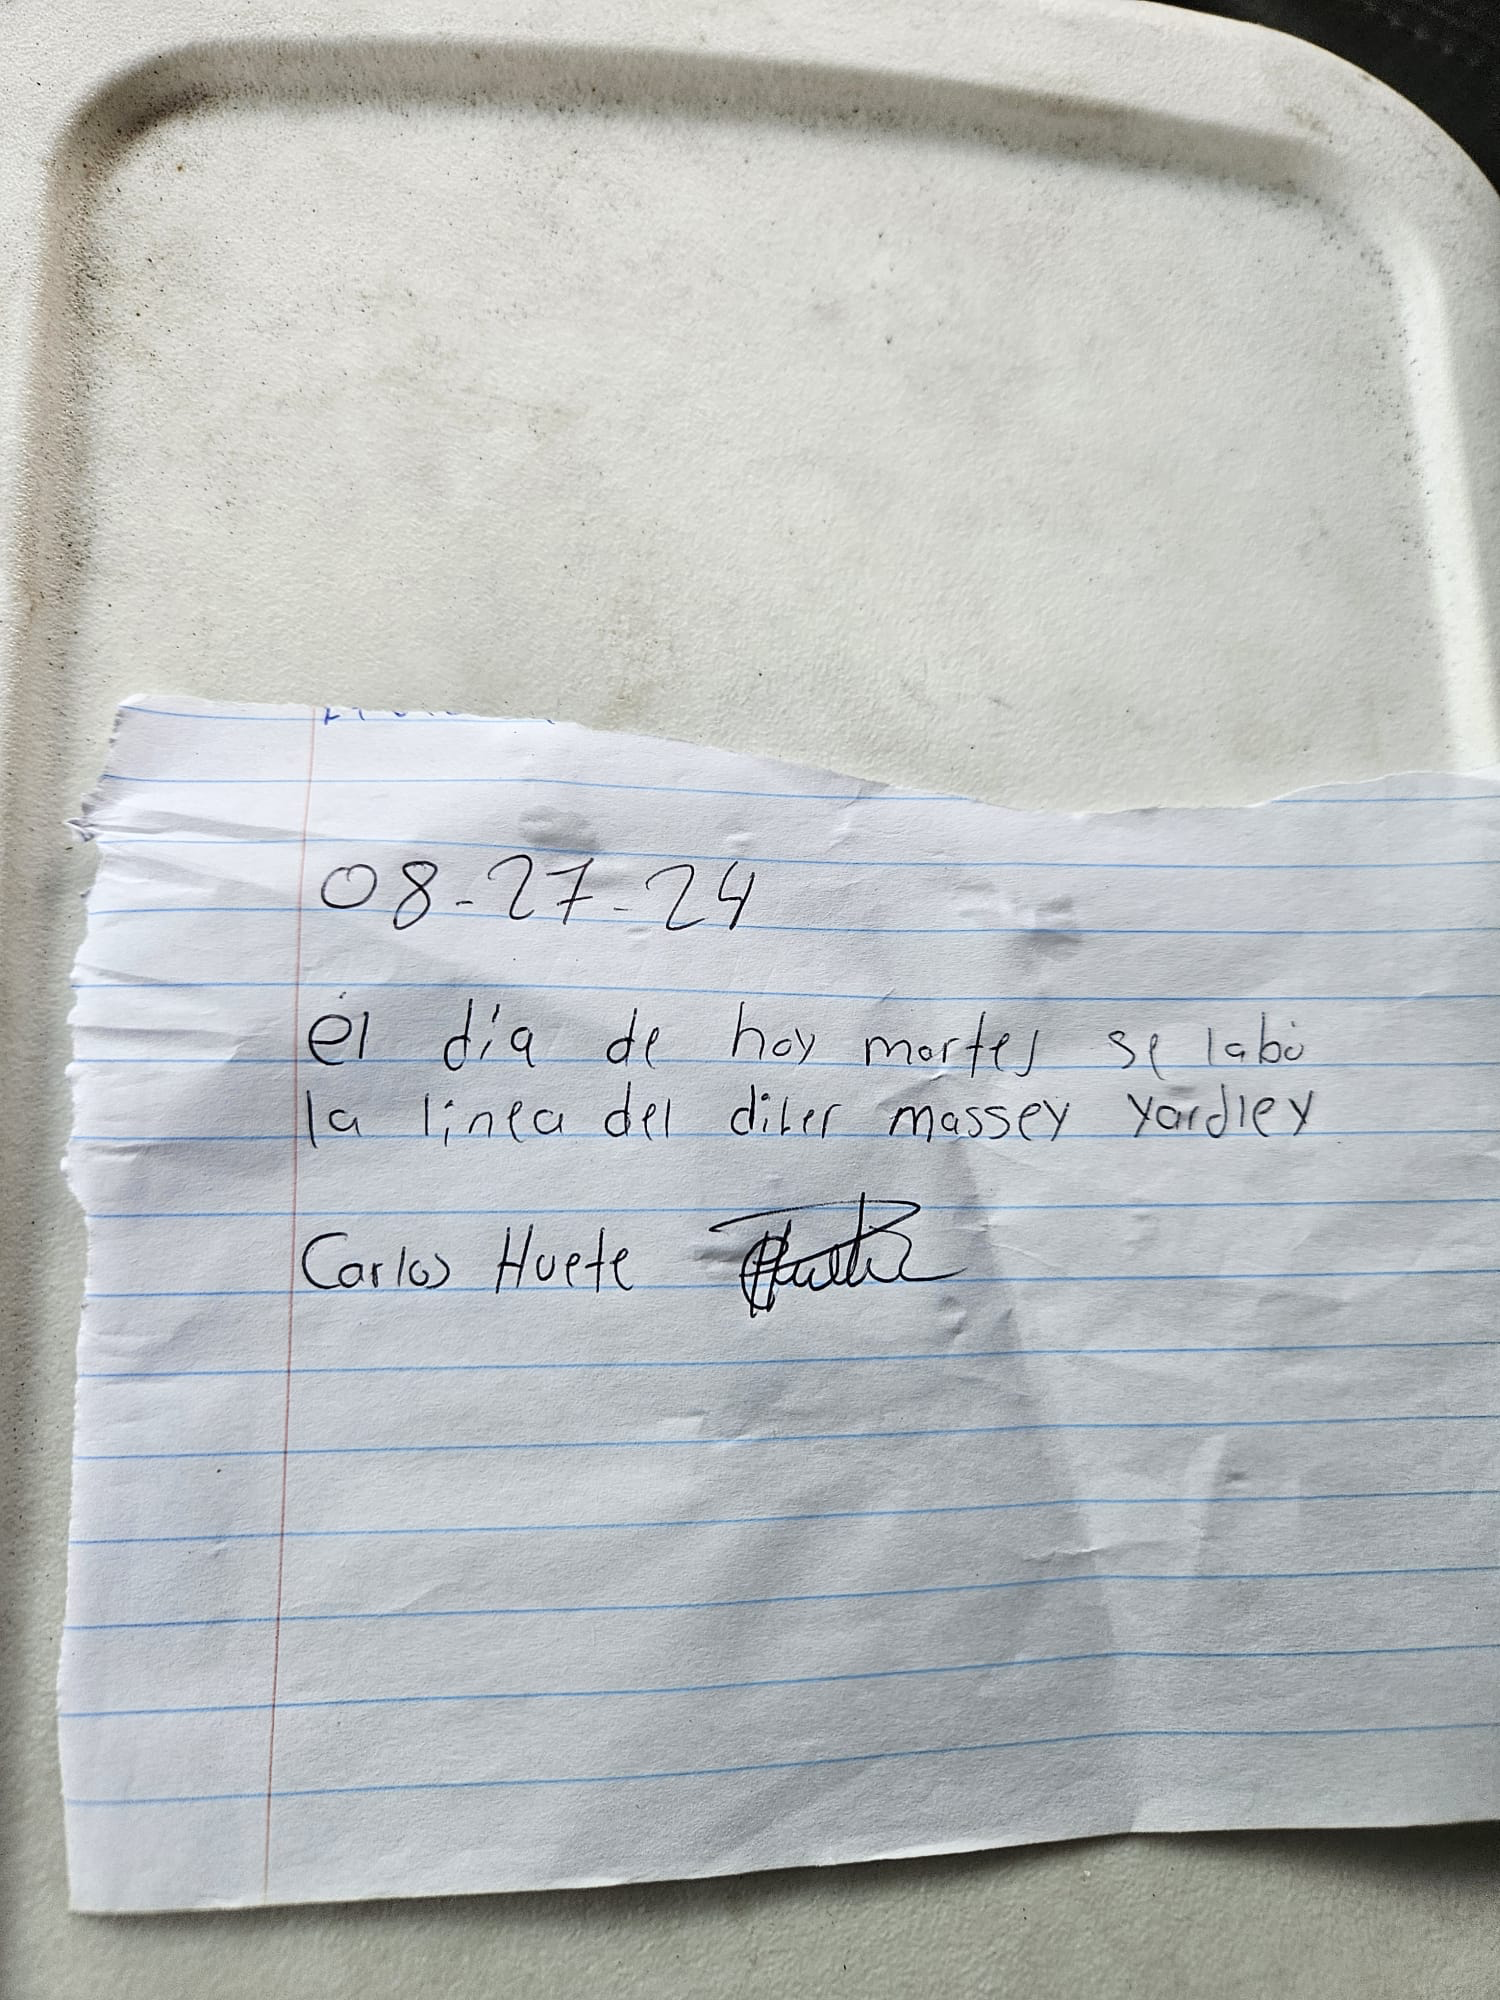 08-27-24
él día de hoy martes se labó
la linea del diler massey yardley
Carlos Huete